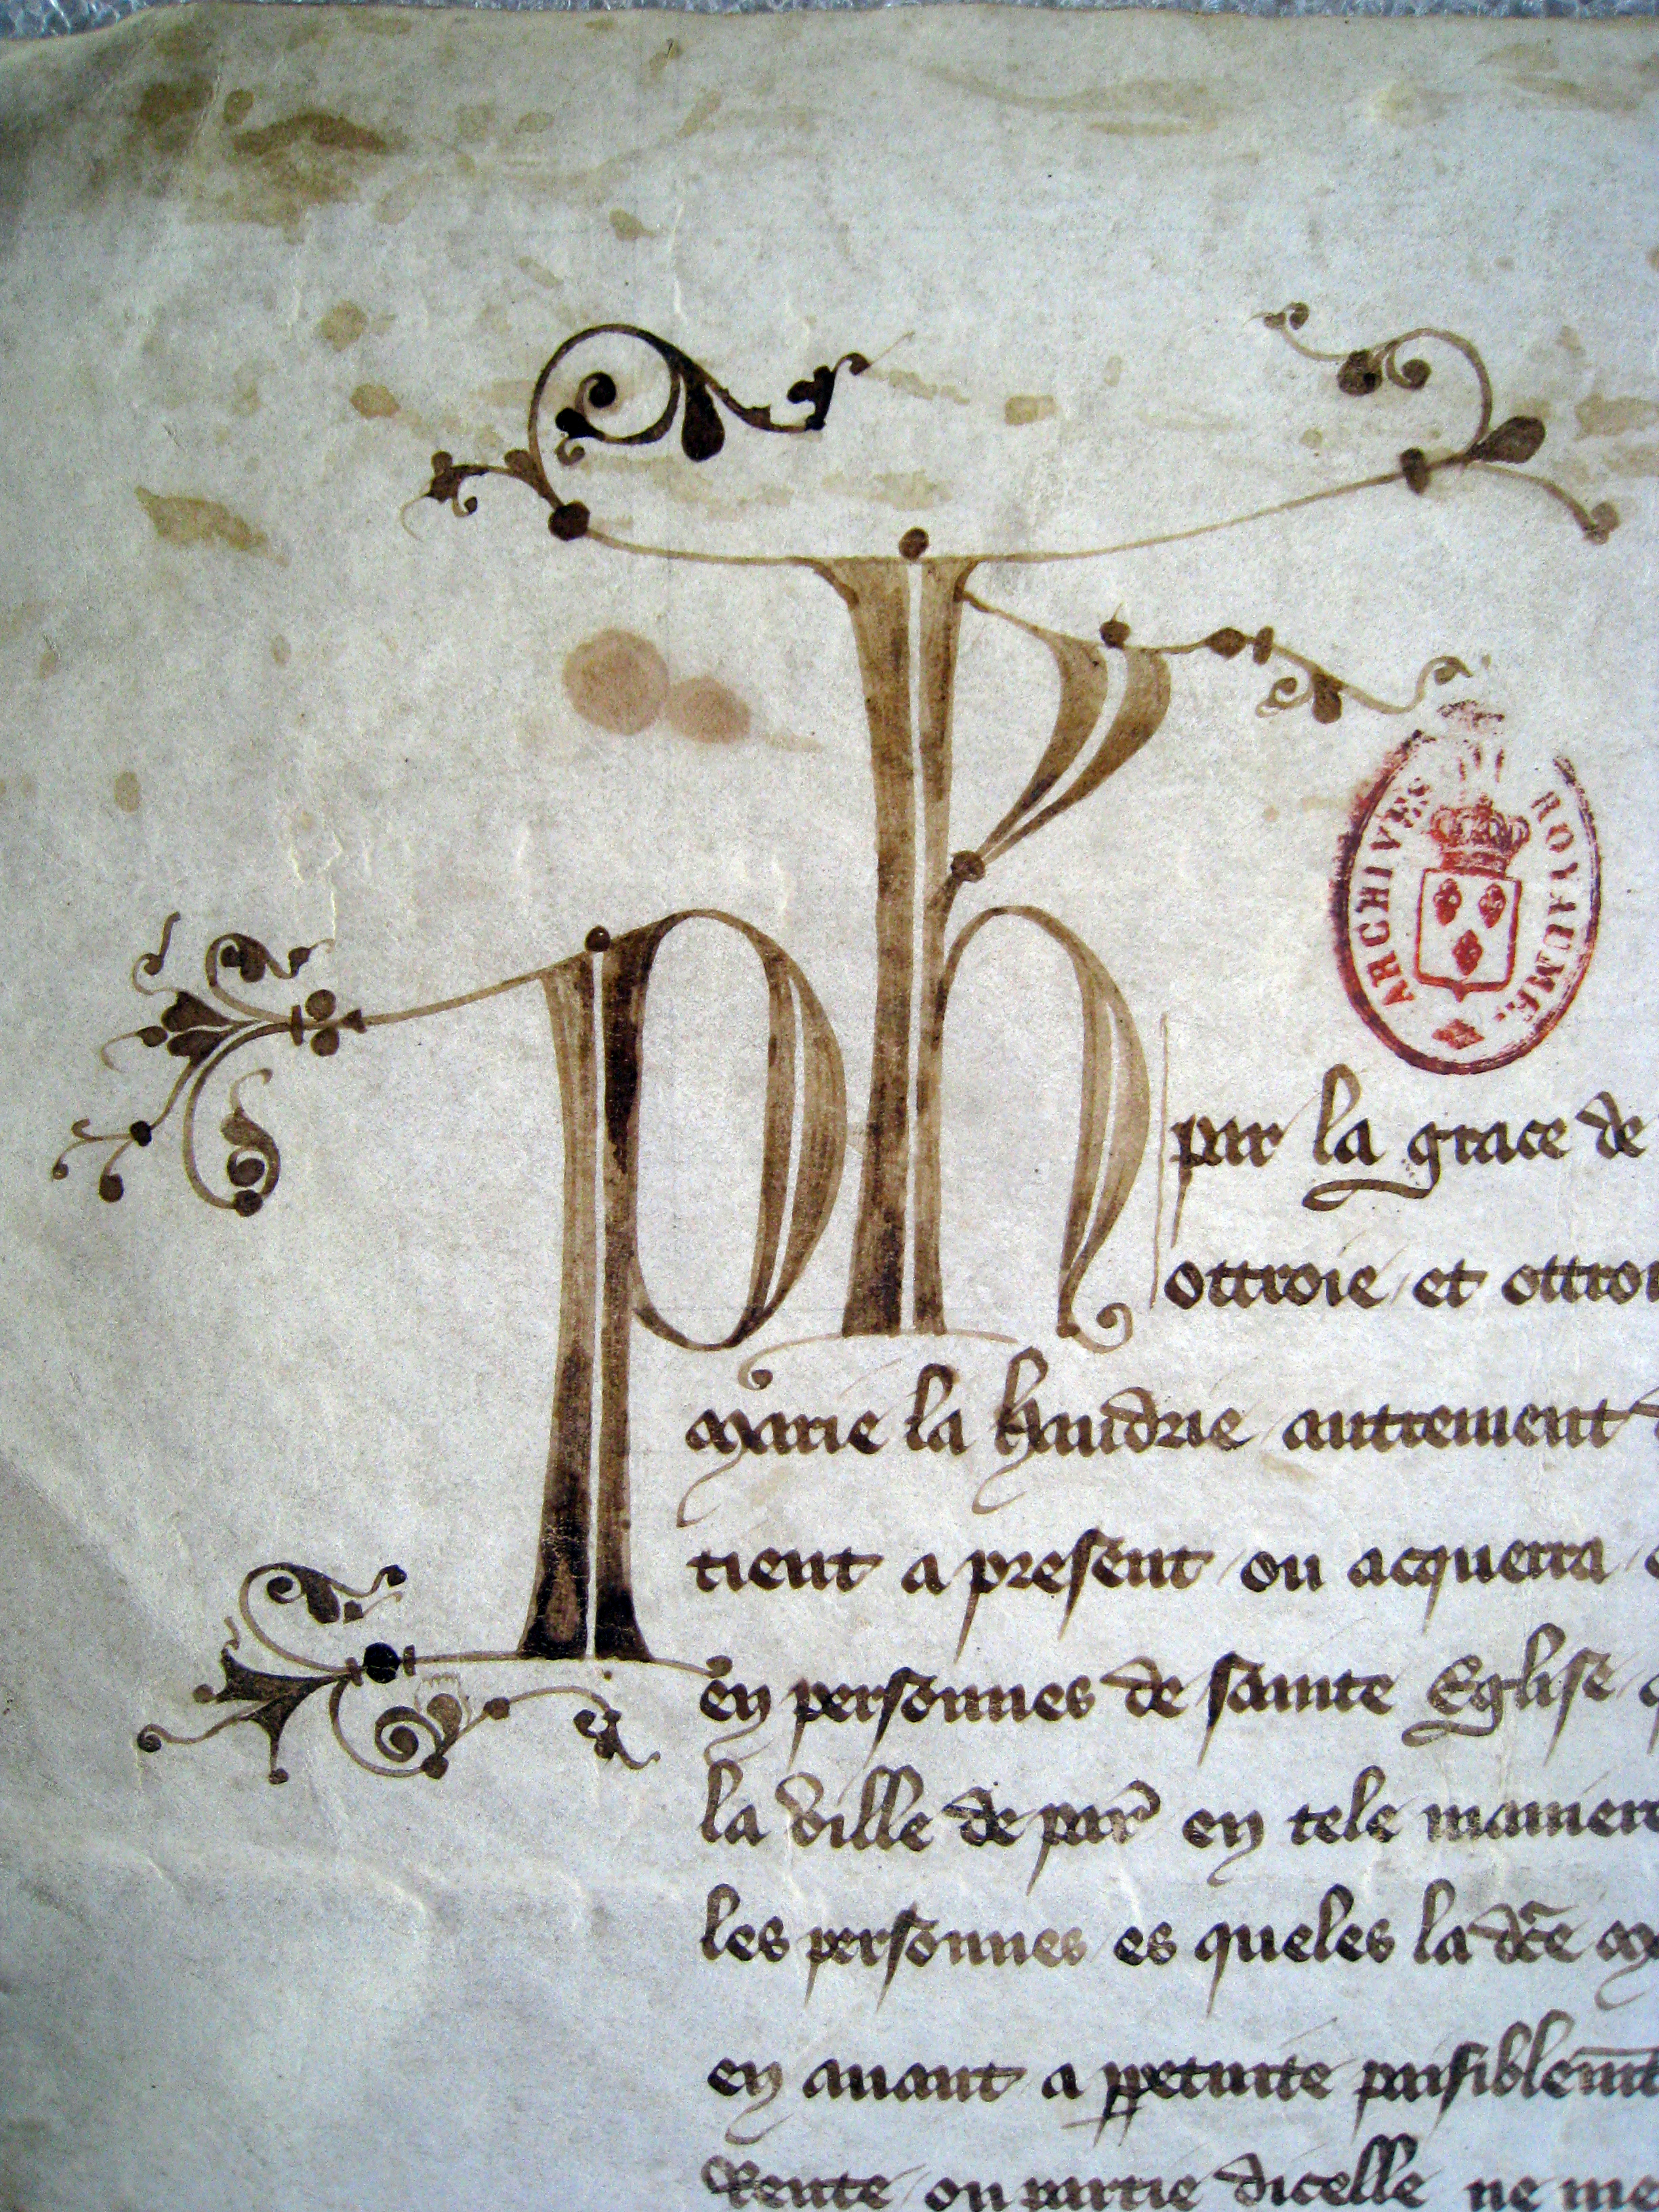 Ph
ARCHIVES ROYAUME
par la grace de
ottroie et ottroi
marie la autrement
tient a present ou acquerra
en personnes de sainte Eglise
la ville de par en tele maniere
les personnes es queles la dce
en auant a ppetuite paisiblemt
Rente ou partie dicelle ne